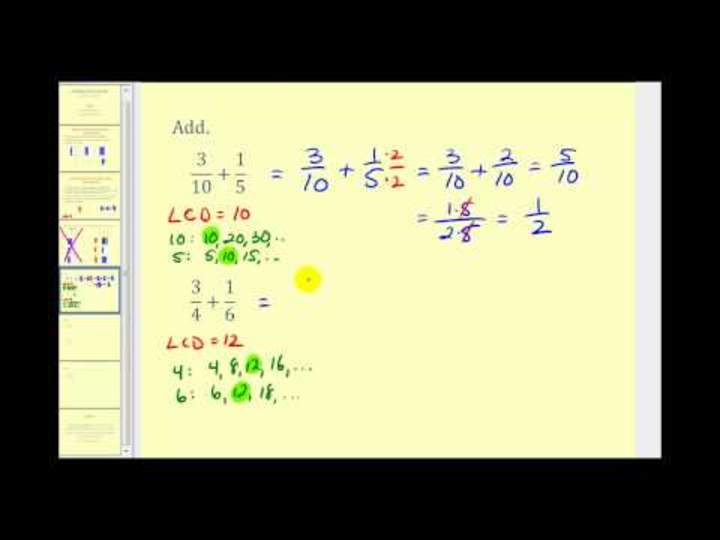 Add.
3/10 + 1/5 = 3/10 + 1·2/5·2 = 3/10 + 2/10 = 5/10
LCD = 10
= 1·5/2·5 = 1/2
10: 10, 20, 30, ..
5: 5, 10, 15, ...
3/4 + 1/6 =
LCD = 12
4: 4, 8, 12, 16, ...
6: 6, 12, 18, ...